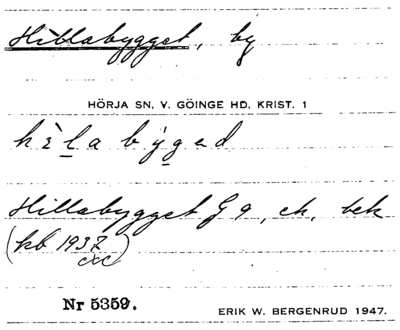 Hillabygget, by
HÖRJA SN, V. GÖINGE HD, KRIST. 1
hìla býged
Hillabygget Gg, ek, bek
(kb 1937
Nr 5359.
ERIK W. BERGENRUD 1947.